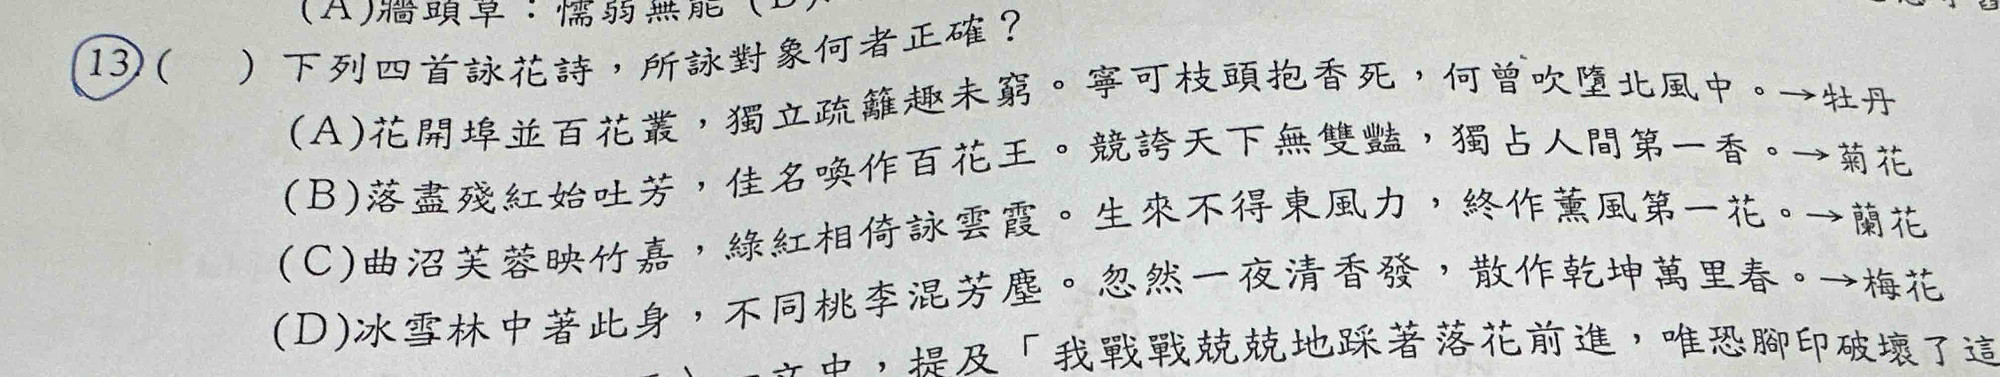 (A)牆頭草：懦弱無能
13.(　　)下列四首詠花詩，所詠對象何者正確？
(A)花開埠並百花叢，獨立疏籬趣未窮。寧可枝頭抱香死，何曾吹墮北風中。→牡丹
(B)落盡殘紅始吐芳，佳名喚作百花王。競誇天下無雙豔，獨占人間第一香。→菊花
(C)曲沼芙蓉映竹嘉，綠紅相倚詠雲霞。生來不得東風力，終作薰風第一花。→蘭花
(D)冰雪林中著此身，不同桃李混芳塵。忽然一夜清香發，散作乾坤萬里春。→梅花
文中，提及「我戰戰兢兢地踩著落花前進，唯恐腳印破壞了這